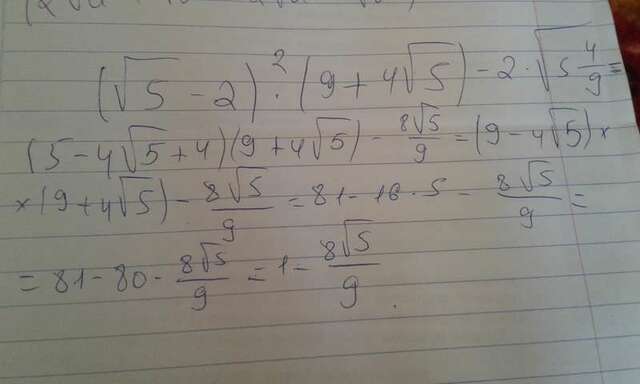 (√5 - 2)² · (9 + 4√5) - 2 · √5 4/9 =
(5 - 4√5 + 4)(9 + 4√5) - 8√5/9 = (9 - 4√5) ×
× (9 + 4√5) - 8√5/9 = 81 - 16 · 5 - 8√5/9 =
= 81 - 80 - 8√5/9 = 1 - 8√5/9.